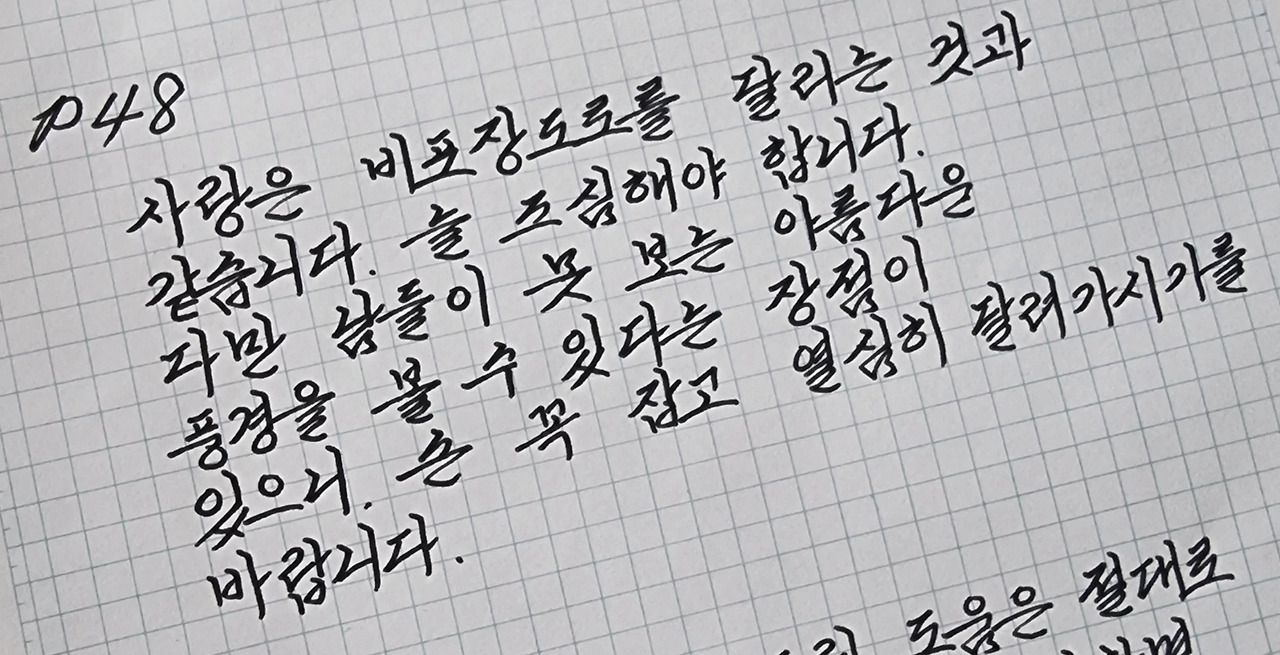 P48
사랑은 비포장도로를 달리는 것과
같습니다. 늘 조심해야 합니다.
다만 남들이 못 보는 아름다운
풍경을 볼 수 있다는 장점이
있으니. 손 꼭 잡고 열심히 달려가시기를
바랍니다.
도움은 절대로